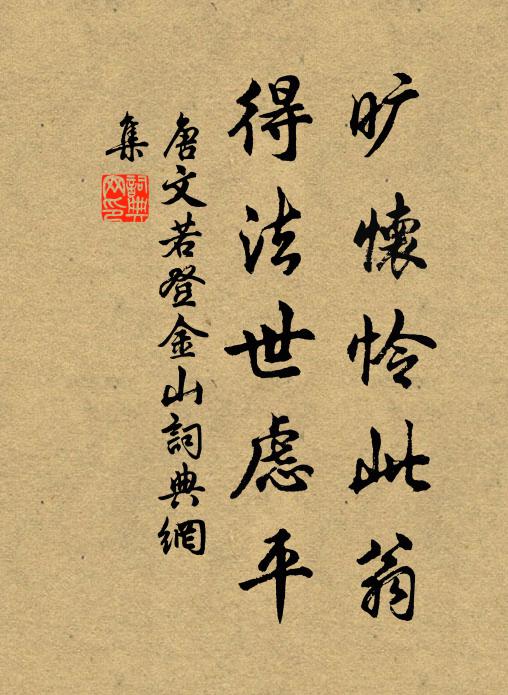 旷懷怜此翁
得法世慮平
唐文若登金山詞典網
集
詞典网印